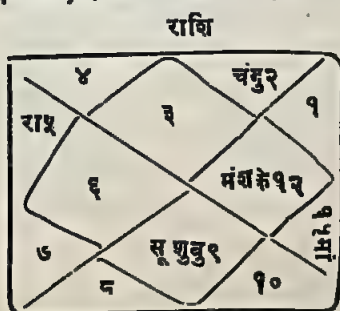 राशि
४
चंगु२
३
१
रा५
६
मंशके१२
७
सू शुबु९
८
१०